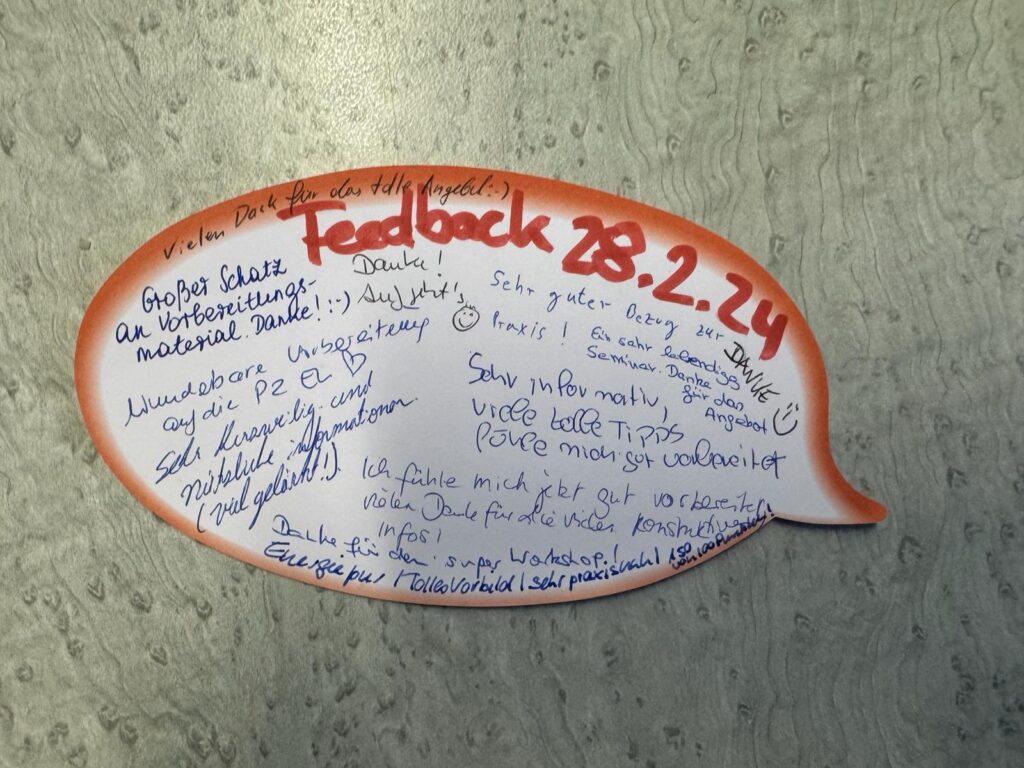 Vielen Dank für das tolle Angebot :-)
Feedback 28.2.24
Großer Schatz
an Vorbereitungs-
material. Danke! :-)
Danke!
Auf jetzt!
Wunderbare Vorbereitung
auf die P2 EL
Sehr kurzweilig und
nützliche Informationen.
(viel gelacht :))
Sehr guter Bezug zur
Praxis!
DANKE
Ein sehr lebendiges
Seminar. Danke
für das
Angebot
Sehr informativ,
viele tolle Tipps
fühle mich gut vorbereitet
Ich fühle mich jetzt gut vorbereitet
vielen Dank für die vielen konstruktiven
Infos!
Danke für den super Workshop!
Energie pur | tolles Vorbild | sehr praxisnah | 150
von 100 Punkten!